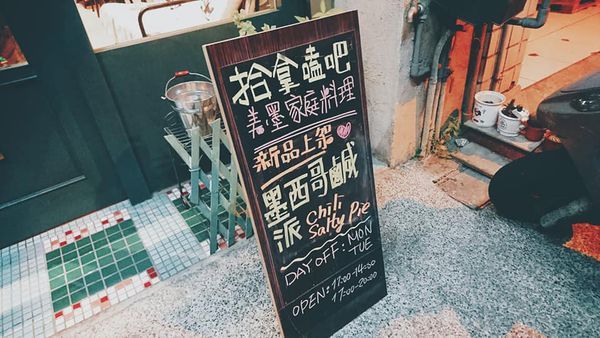 拾拿嗑吧
美墨家庭料理
新品上架
墨西哥鹹
派 Chili
Salty Pie
DAY OFF: MON
TUE
OPEN: 12:00-14:00
17:00-20:00